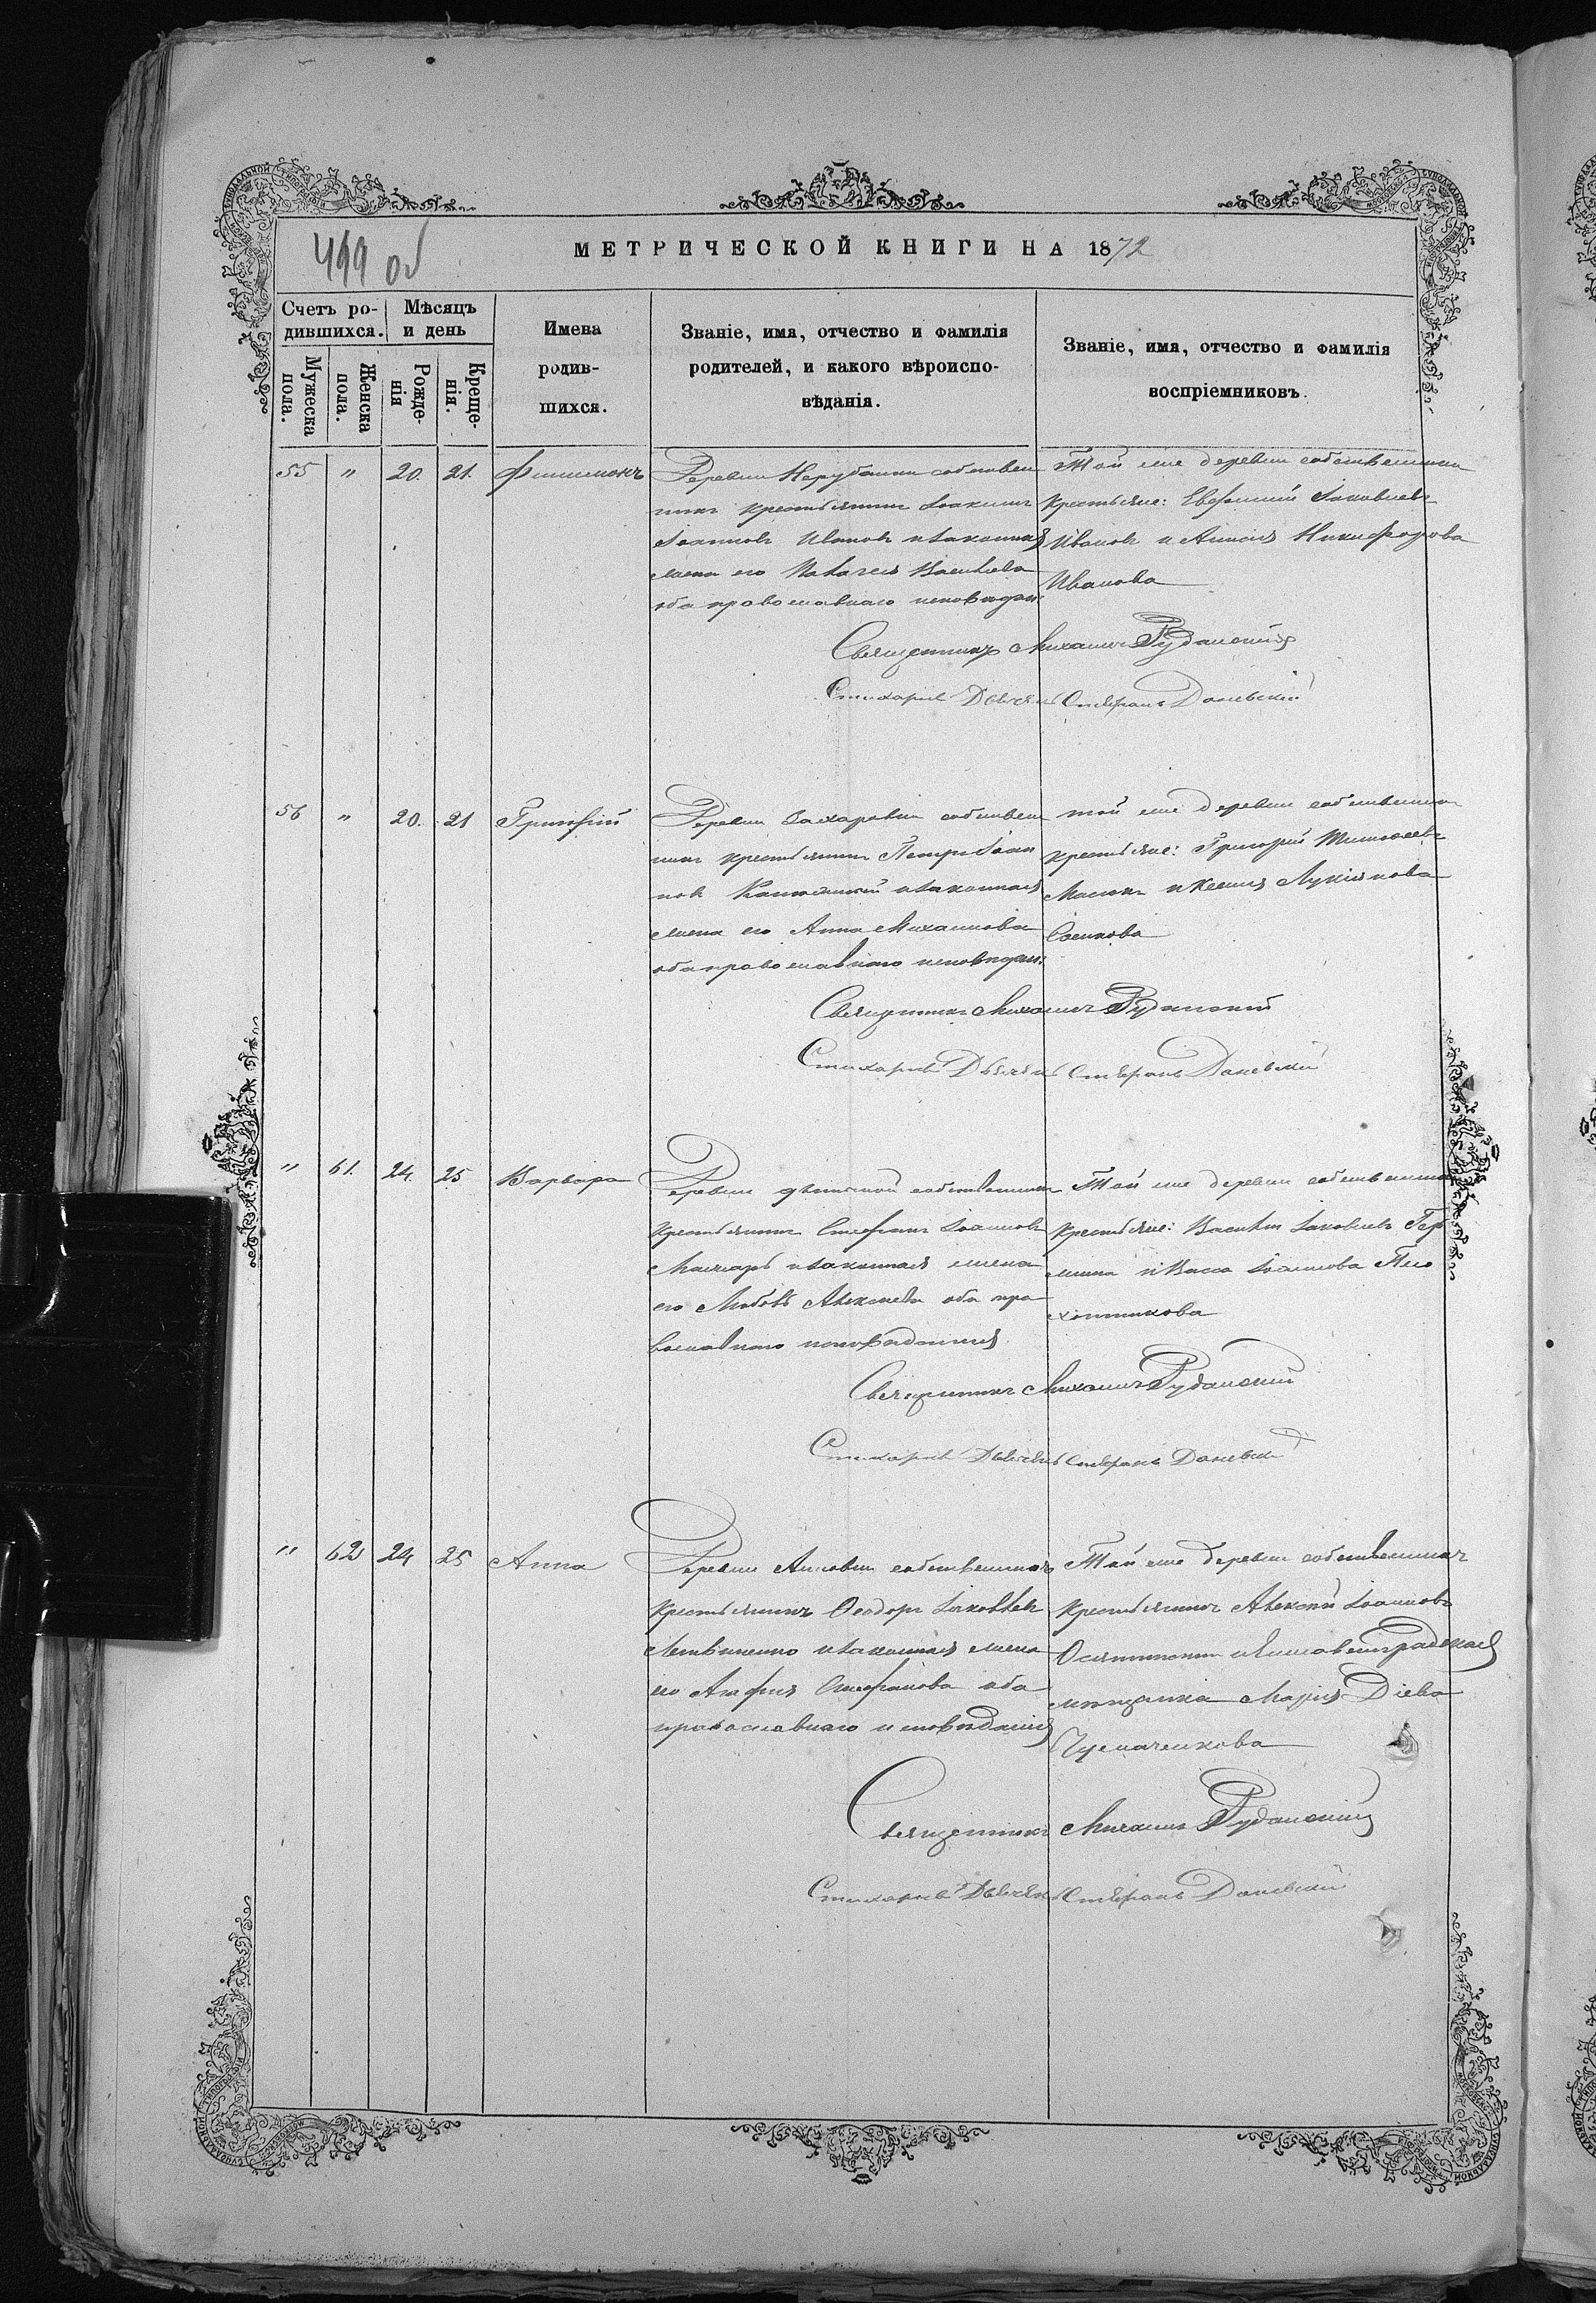 499 об
МЕТРИЧЕСКОЙ КНИГИ НА 1872
Счетъ ро-
дившихся.
Мѣсяцъ
и день
Имена
родив-
шихся.
Званіе, имя, отчество и фамилія
родителей, и какого вѣроиспо-
вѣданія.
Званіе, имя, отчество и фамилія
воспріемниковъ.
Мужеска
пола.
Женска
пола.
Рожде-
нія
Креще-
нія.
55 " 20. 21. Филимонъ
Деревни Нерубаики собствен
никъ крестьянинъ Іоакимъ
Іоанновъ Ивановъ и законная
жена его Васильева
оба православнаго исповѣдан:
Той же деревни собственники
крестьяне: Евфимій Іаковлевъ
Ивановъ и Анисія Никифорова
Иванова
Священникъ Михаилъ Руданскій
Стихарный Дьячекъ Стефанъ Даневскій
56 " 20. 21 Григорій
Деревни Захаровки собствен
никъ крестьянинъ Петръ Іоан
новъ и законная
жена его Анна Михаилова
оба православнаго исповѣдан:
той же деревни собственники
крестьяне: Григорій Тимофеевъ
и Ксенія Лукіянова
Священникъ Михаилъ Руданскій
Стихарный Дьячекъ Стефанъ Даневскій
" 61. 24. 25 Варвара
Деревни собственникъ
крестьянинъ Стефанъ Іоанновъ
и законная жена
его Любовь Алексіева оба пра
вославнаго исповѣданія
Той же деревни собственники
крестьяне: Василій Іаковлевъ
и Васса Іоаннова
Священникъ Михаилъ Руданскій
Стихарный Дьячекъ Стефанъ Даневскій
" 62 24 25 Анна
Деревни собственникъ
крестьянинъ Ѳеодоръ Іаковлевъ
Литвиненко и законная жена
его Стефанова оба
православнаго исповѣданія
Той же деревни собственникъ
крестьянинъ Алексѣй Іоанновъ
и Елисаветградская
мѣщанка Марія
Священникъ Михаилъ Руданскій
Стихарный Дьячекъ Стефанъ Даневскій